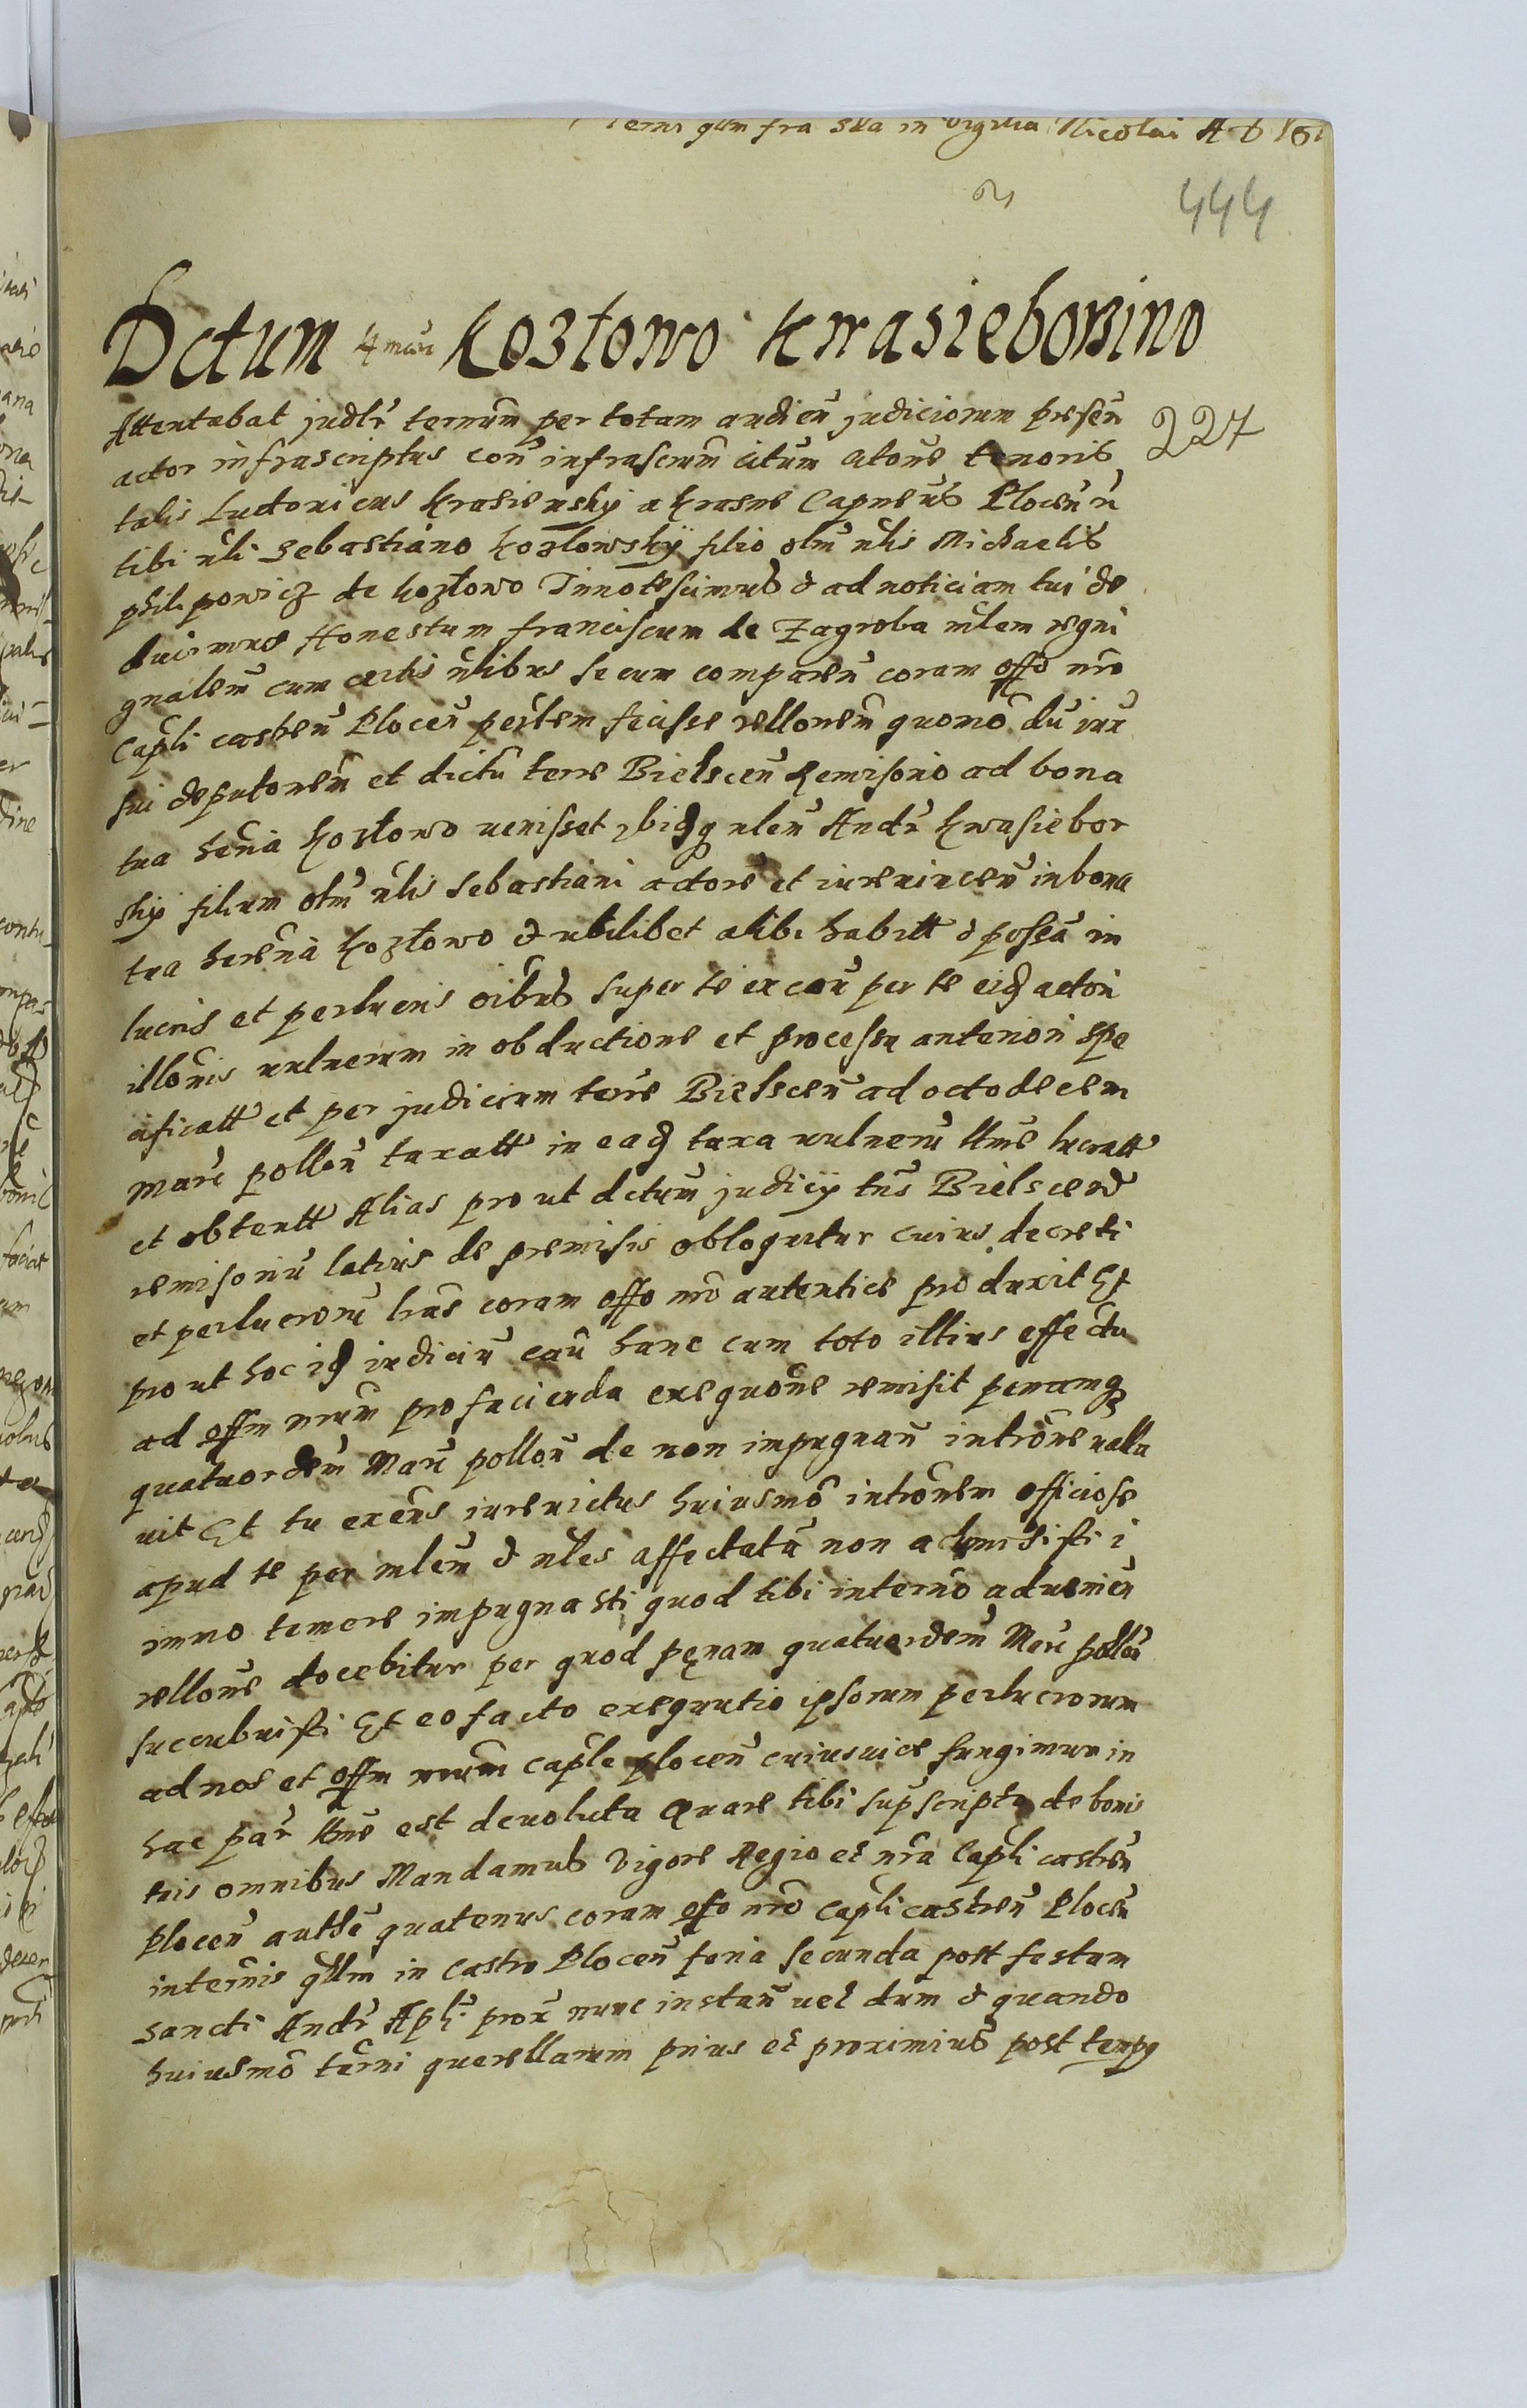 Termi qllm fra 2da in vigilia Nicolai A D 161
444
Dctum 4 marc Kozłowo Krrasieborzino
227
Attentabat judlr termm per totam audien judiciorum presen
actor infrascriptus con infrascrum citum atone tenoris
talis Ludouicus Krasiensky a Krasne Capneus Plocen
tibi nli Sebastiano Kozlowsky filio olm nlis Michaelis
philipowicz de Kozłowo Innotescimus & ad noticiam tui de
ducimus Honestum franciscum de Zagroba mlem regni
gnalem cum certis nlibus secum comparen coram offo nro
Capli castren Plocen perlem fecisse rellonem quomo du iux
sui deputonem et dictu terre Bielscen Remisorio ad bona
tua hena Kozłowo uenisset ibidq nlem Andr Krrasiebor
sky filium olm nlis Sebastiani actore et iureuincen in bona
tua herena Kozłowo & ubilibet alibi habitt & possa in
lucris et perlucris oibus super te ex cau per te eid actori
illonis uulnerum in obductione et processu anteriori spe
cificatt et per judicium terre Bielscen ad octodecem
marc pollon taxatt in ead taxa uulneru ltme lucratt
et obtentt Alias prout dctum judicy tris Bielscen
remisoriu latius de premisis obloquitur cuius decreti
et perlucroru lras coram offo nro autentice produxit Et
prout hoc id iudiciu cau hanc cum toto illius effectu
ad offm nrum pro facienda exequone remisit penamq
quatuordem Marc pollon de non impugnan introne ualla
uit Et tu exens iureuictus huiusmo intronem officiose
apud te per mlem & nles affectata non admisisti i
immo temere impugnasti quod tibi interno aduenien
rellone docebitur per quod pęnam quatuordem Marc pollon
succubuisti Et eo facto exequutio ipsorum perlucrorum
ad nos et offm nrum caple plocen cuius uice fungimur in
hac par ltme est deuoluta Quare tibi supscripto de bonis
tuis omnibus Mandamus Vigore Regio et nra Capli castren
Plocen authe quatenus coram offo nro Capli castren Plocen
in termis qllm in castro Plocen feria secunda post festum
sancti Andr Apli prox nunc instan uel dum & quando
huiusmo termi querellarum prius et proximius post temps